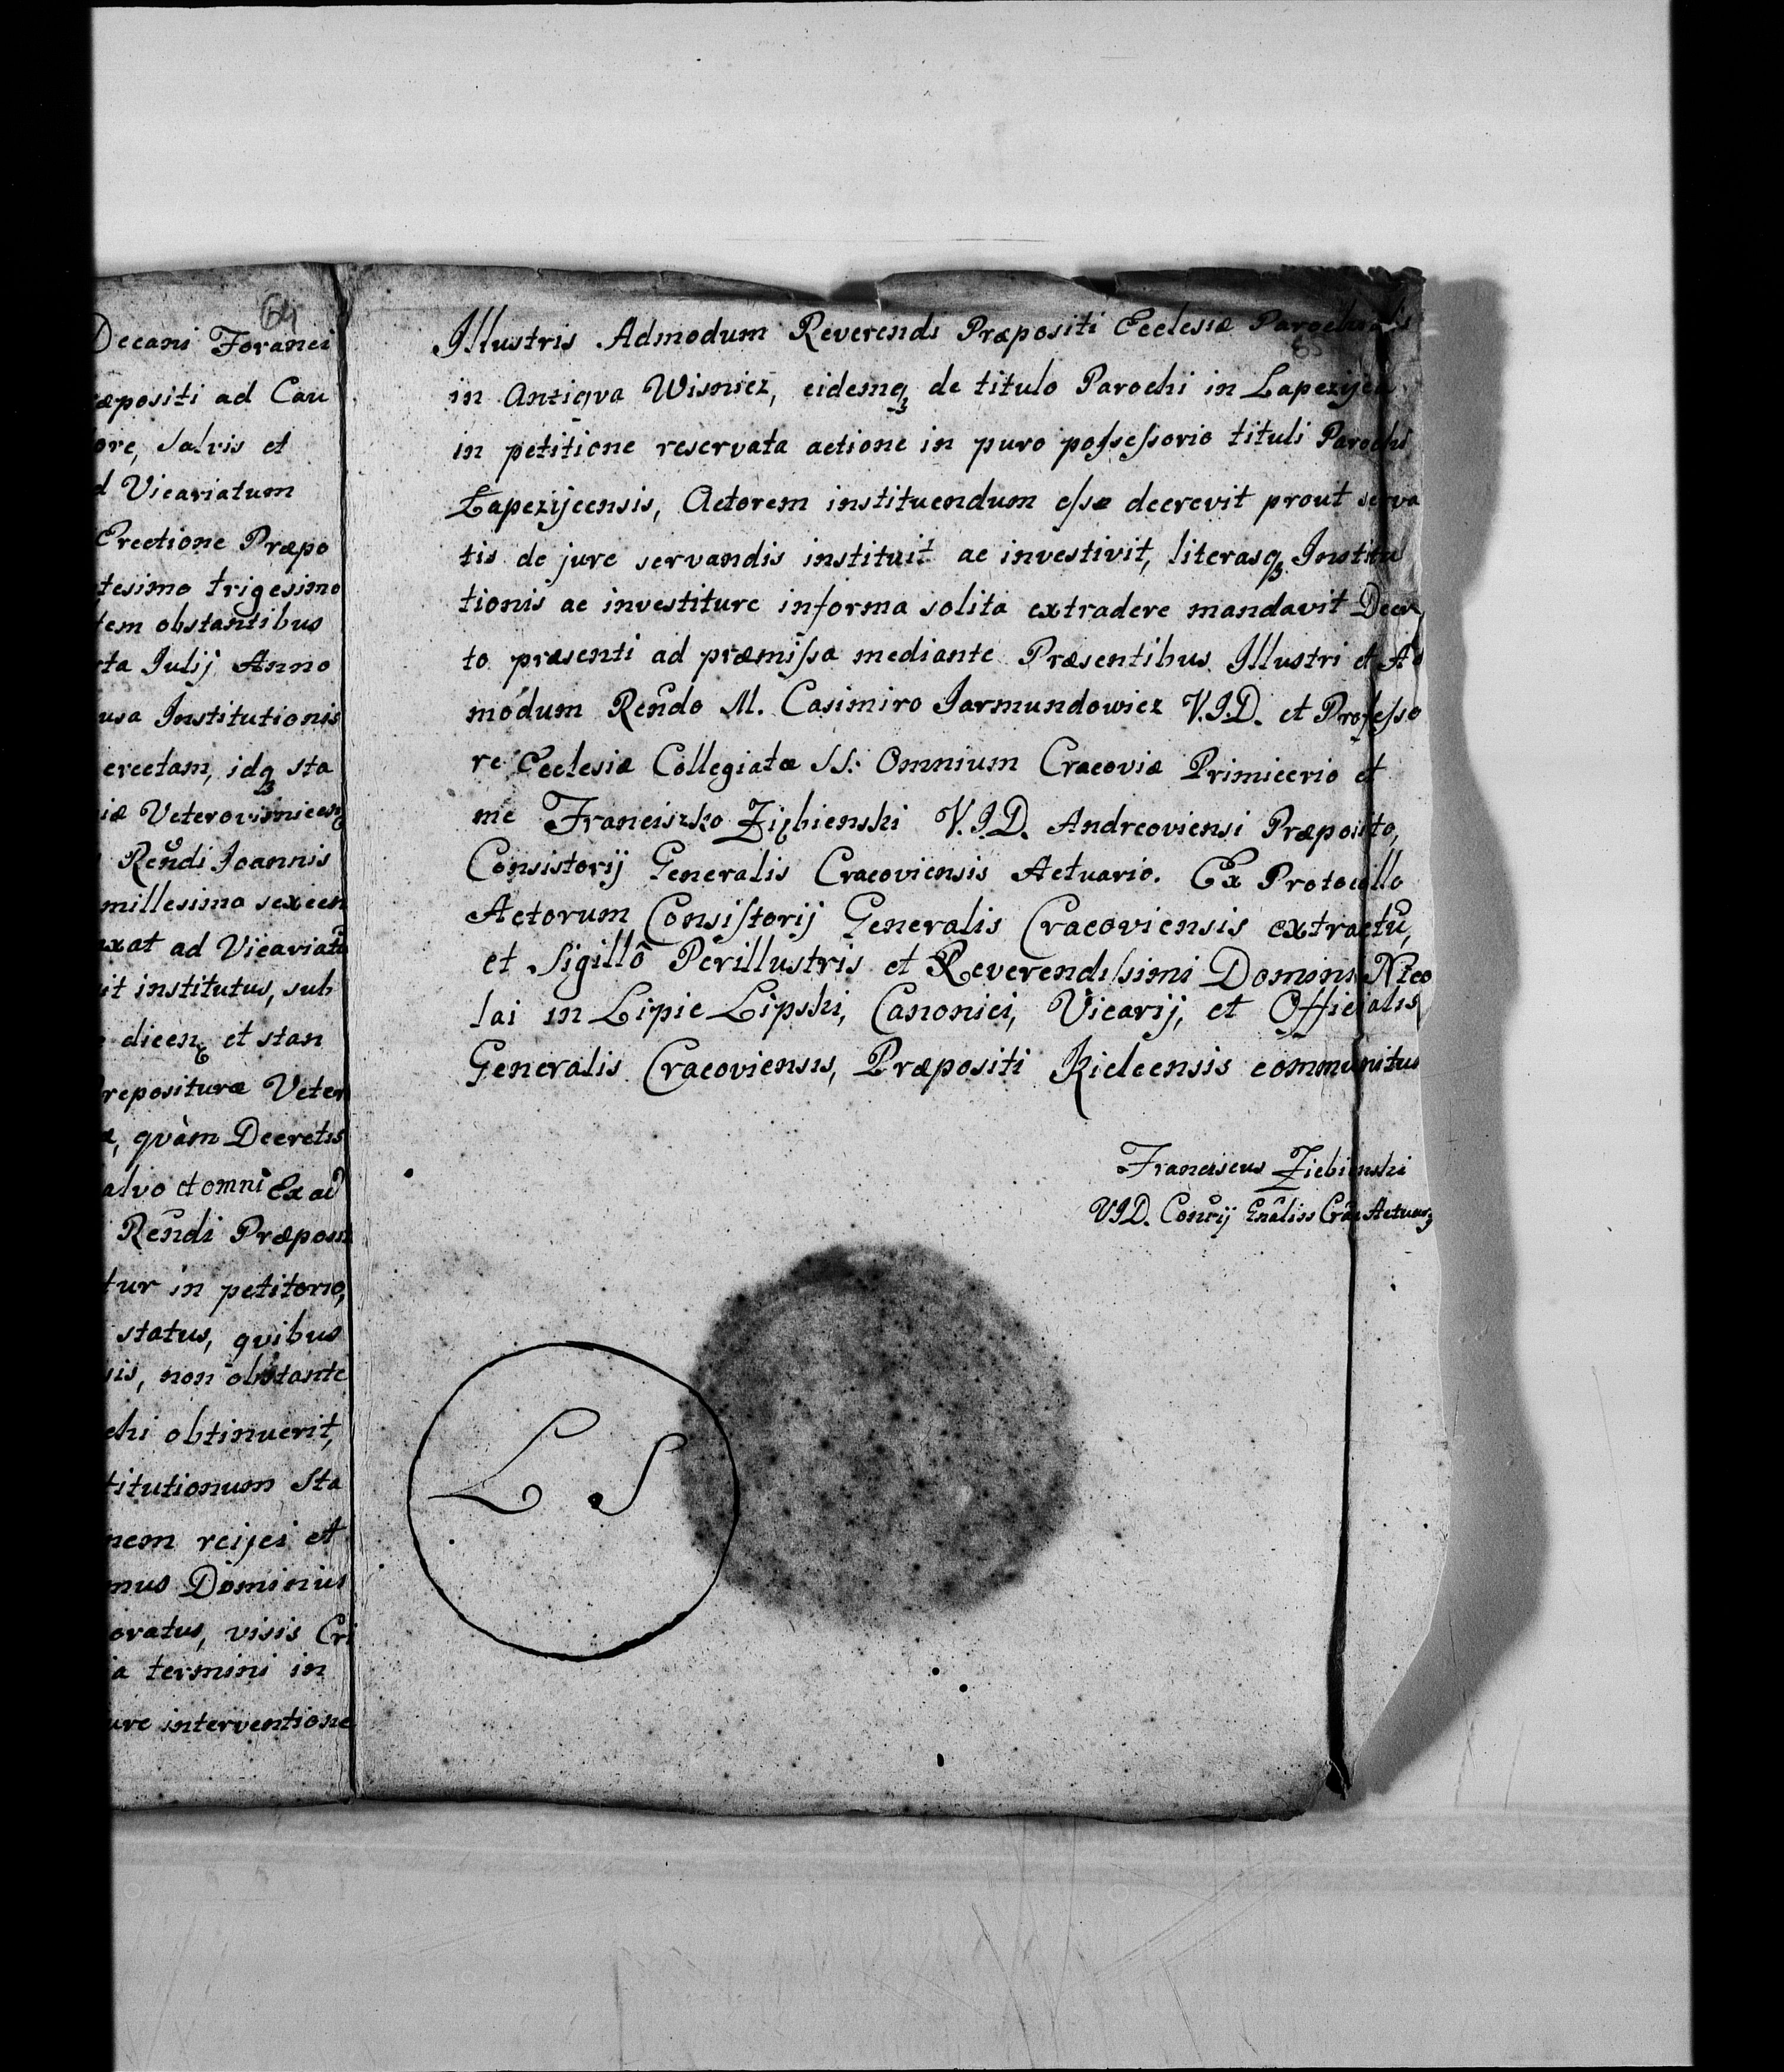 64
Decani Foranei
æpositi ad Cau
ore, salvis et
d Vicariatum
Erectione Præpo
tesimo trigesimo
tem obstantibus
rta Julij Anno
usa Institutionis
erectam, idq sta
iæ Veterovisnicen
Rendi Joannis
millesimo sexcen
axat ad Vicariatu
it institutus, sub
dicen et stan
repositura Veter
, quàm Decretis
alvo et omni Ex ad
Rendi Præposit
tur in petitorio,
status, quibus
sis, non obstante
chi obtinuerit,
titutionum Sta
nem reijci et
mus Dominus
oratus, visis Cri
a termini in
ure interventione
65
Illustris Admodum Reverendi Præpositi Ecclesiæ Parochialis
in Antiqva Wisnicz, eidemq de titulo Parochi in Lapczyca
in petitione reservata actione in puro possessorio tituli Parochi
Lapczycensis, Actorem instituendum esse decrevit prout serva
tis de jure servandis instituit ac investivit, literasq Institu
tionis ac investiture in forma solita extradere mandavit Decre
to præsenti ad præmissa mediante Præsentibus Illustri et Ad
modum Rendo M. Casimiro Jarmundowicz V.J.D. et Professo
re Ecclesiæ Collegiatæ SS: Omnium Cracoviæ Primicerio et
me Franciszko Ziębienski V.J.D. Andreoviensi Præposito,
Consistorij Generalis Cracoviensis Actuario. Ex Protocollo
Actorum Consistorij Generalis Cracoviensis extractu,
et Sigillô Perillustris et Reverendissimi Domini Nico
lai in Lipie Lipski, Canonici, Vicarij, et Officialis
Generalis Cracoviensis, Præpositi Kielcensis communitus
Franciscus Ziebienski
VJD. Conrij Gnâliss Crac Actuarq
L. S